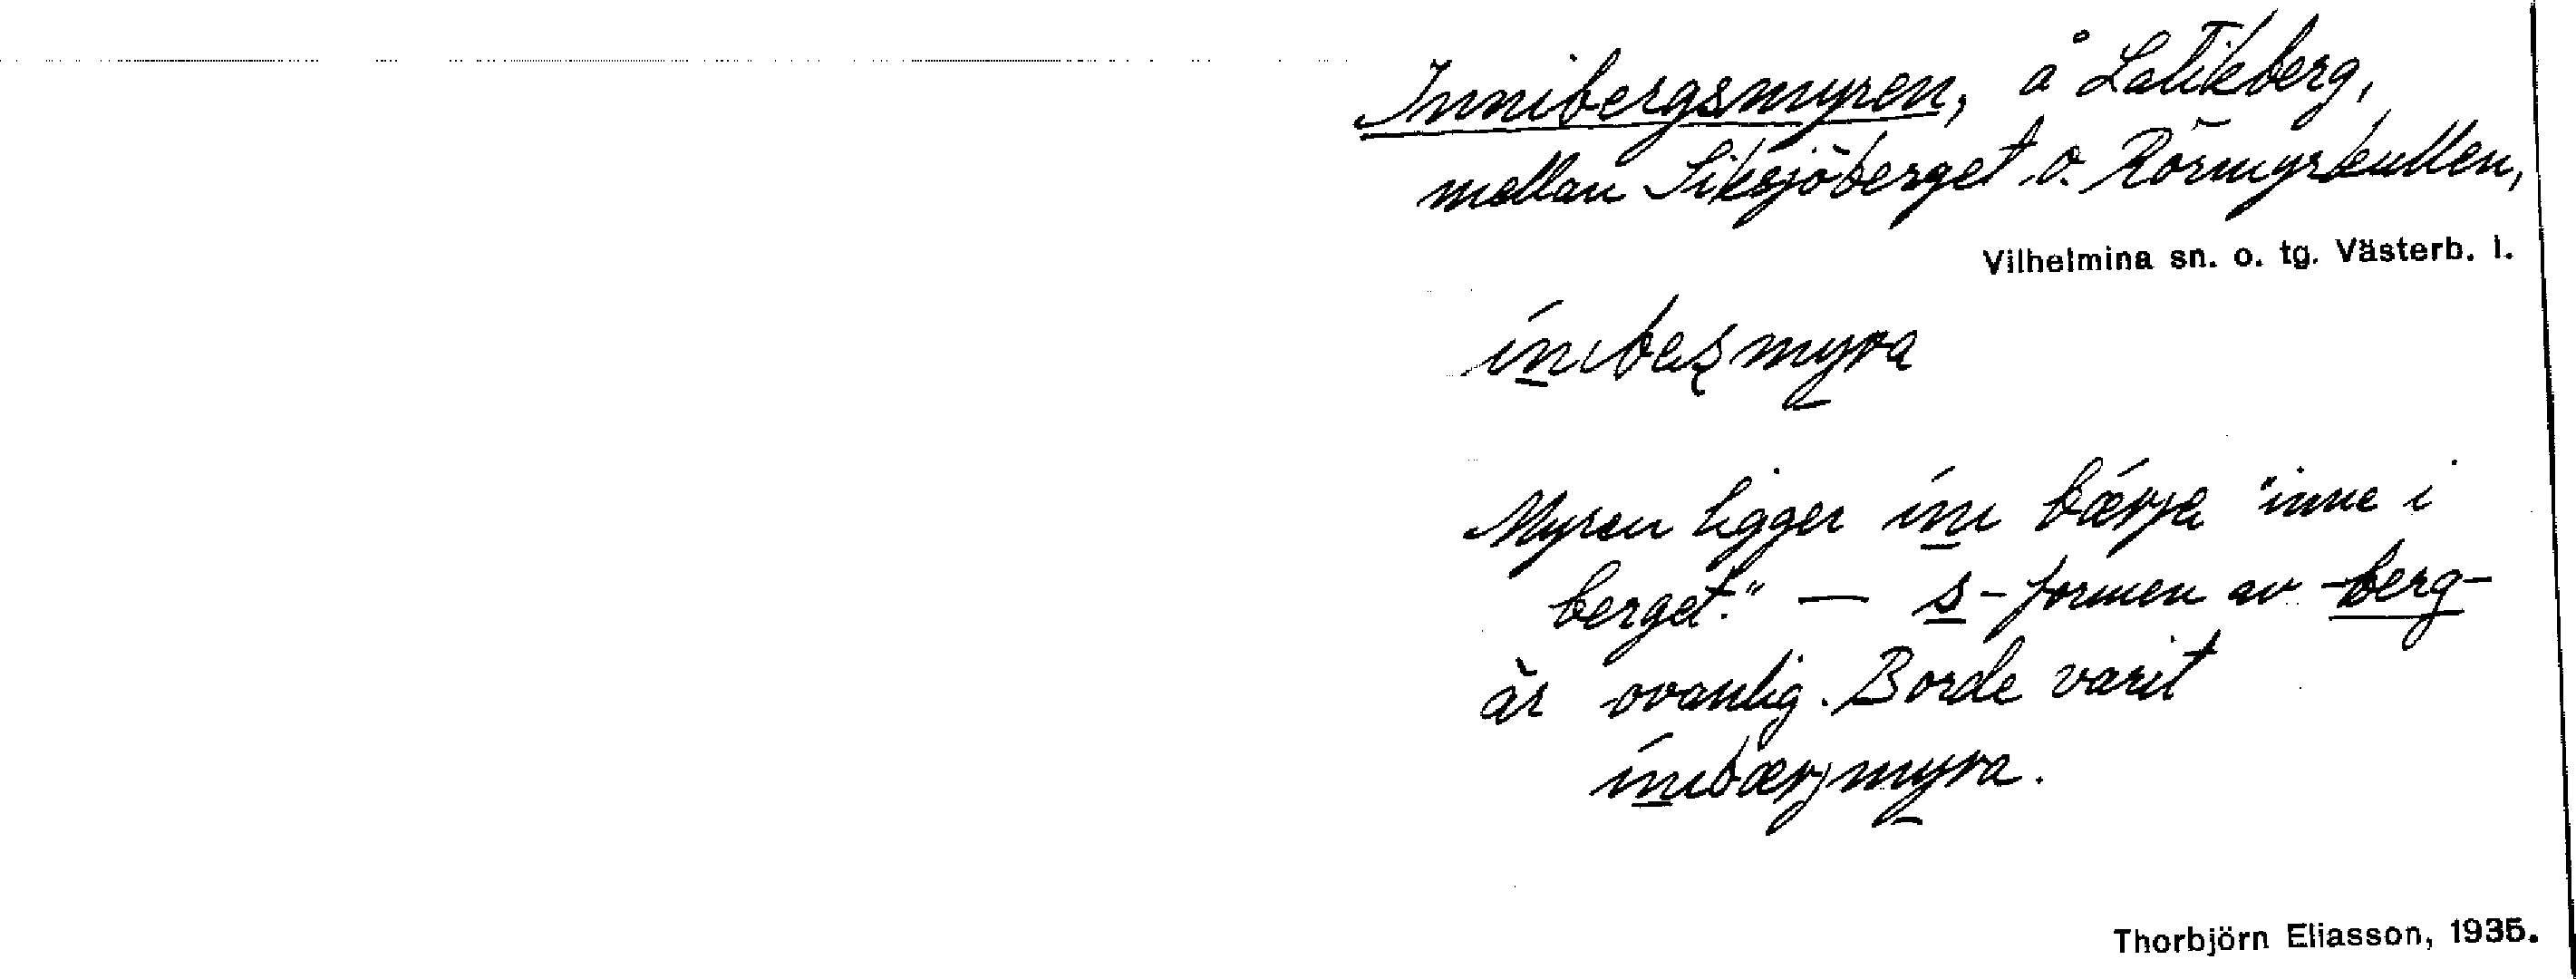 Innibergsmyren, å Latikberg,
mellan Siksjöberget o. Rörmyrkullen,
Vilhelmina sn. o. tg. Västerb. l.
ínıbeʂmyra
Myren ligger ínı bǽrja "inne i
berget." — s-formen av -berg-
är ovanlig. Borde varit
ínıbærjmyra.
Thorbjörn Eliasson, 1935.